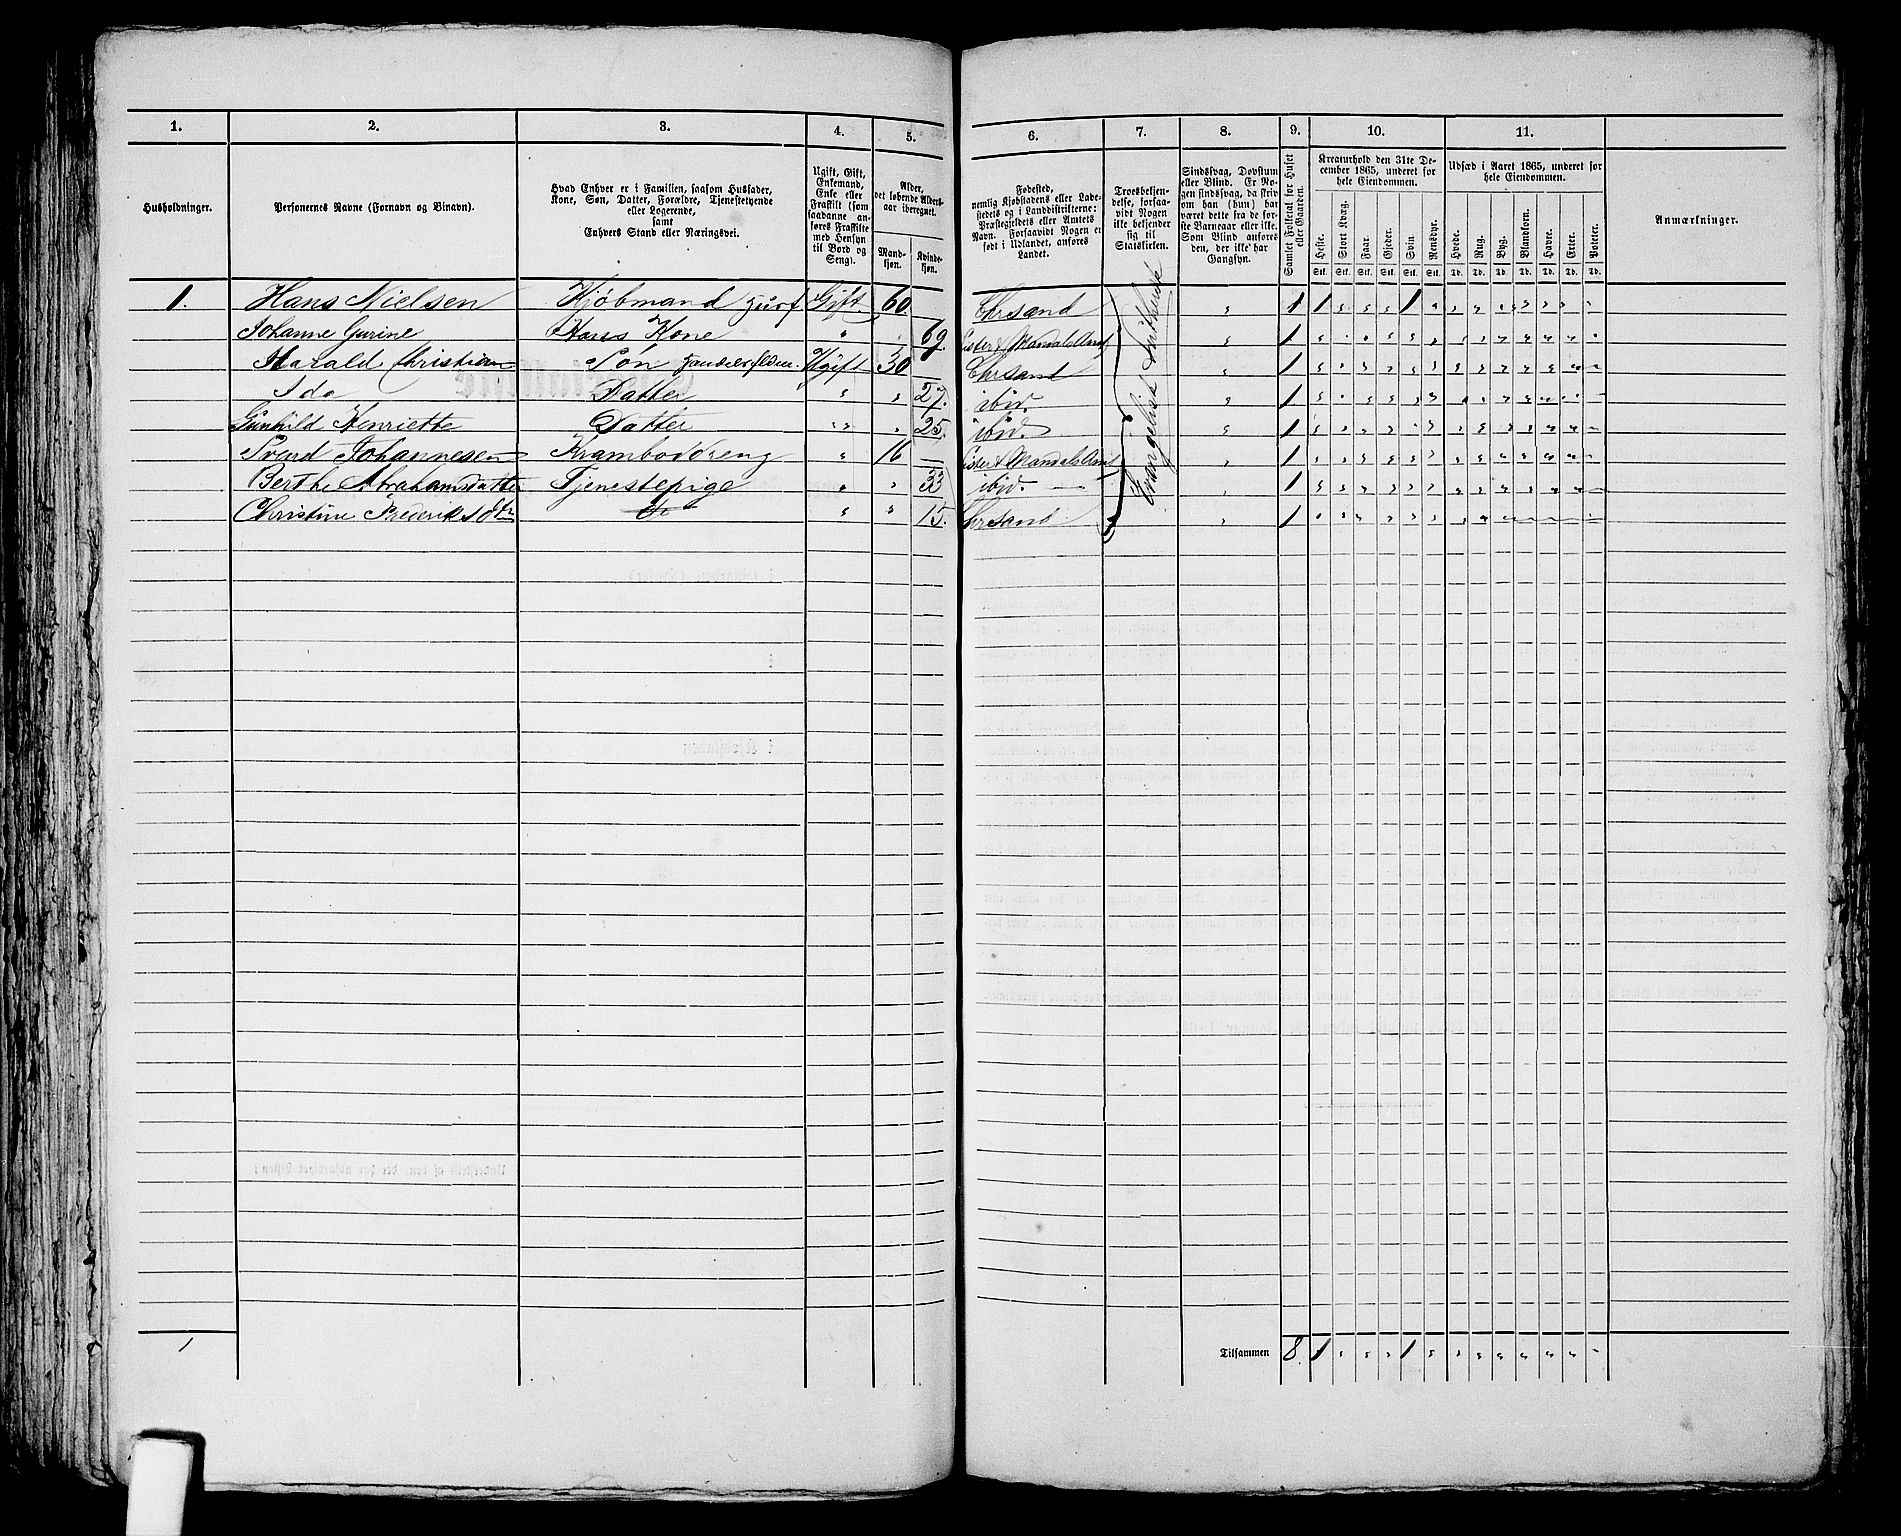 1. 2. 3. 4. 5. 6. 7. 8. 9. 10. 11.
Husholdninger.
Personernes Navne (Fornavn og Binavn).
Hvad Enhver er i Familien, saasom Husfader,
Kone, Søn, Datter, Forældre, Tjenestetyende
eller Logerende,
samt
Enhvers Stand eller Næringsvei.
Ugift, Gift,
Enkemand,
Enke eller
Fraskilt (som
saadanne an-
føres Fraskilte
med Hensyn
til Bord og
Seng).
Alder,
det løbende Alders-
aar iberegnet.
Mand-
kjøn.
Kvinde-
kjøn.
Fødested,
nemlig Kjøbstadens eller Lade-
stedets og i Landdistrikterne:
Præstegjeldets eller Amtets
Navn. Forsaavidt Nogen er
født i Udlandet, anføres
Landet.
Troesbekjen-
delse, forsaa-
vidt Nogen
ikke bekjender
sig til
Statskirken.
Sindssvag, Døvstum
eller Blind. Er No-
gen sindssvag, da skriv
om han (hun) har
været dette fra de før-
ste Barneaar eller ikke.
Som Blind anføres
den, der ikke har
Gangsyn.
Samlet Folketal for Huset
eller Gaarden.
Kreaturhold den 31te De-
cember 1865, underet for
hele Eiendommen.
Heste. Stort Kvæg. Faar. Gjeder. Svin. Rensdyr.
Stk. Stk. Stk. Stk. Stk. Stk.
Udsæd i Aaret 1865, underet for
hele Eiendommen.
Hvede. Rug. Byg. Blandkorn. Havre. Erter. Poteter.
Td. Td. Td. Td. Td. Td. Td.
Anmærkninger.
1. Hans Nielsen Kjøbmand Gift 60 Chrsand " 1 1 " " " 1 " " " " " " " "
Johanne Gurine Hans Kone " " 69. Lister & Mandals Amt " 1
Harald Christian Søn Ugift 30 Chrsand " 1
Ida Datter " " 27. ibid. " 1
Gunhild Henriette Datter " " 25. ibid. " 1
Svend Johannesen Krambodreng " 16 Lister & Mandals Amt " 1
Berthe Abrahamsdatter Tjenestepige " " 33 ibid. " 1
Christine Frederiksdtr " " 15. Chrsand " 1
Evangelisk Luthersk
1 Tilsammen 8. 1 " " " 1 " " " " " " " "